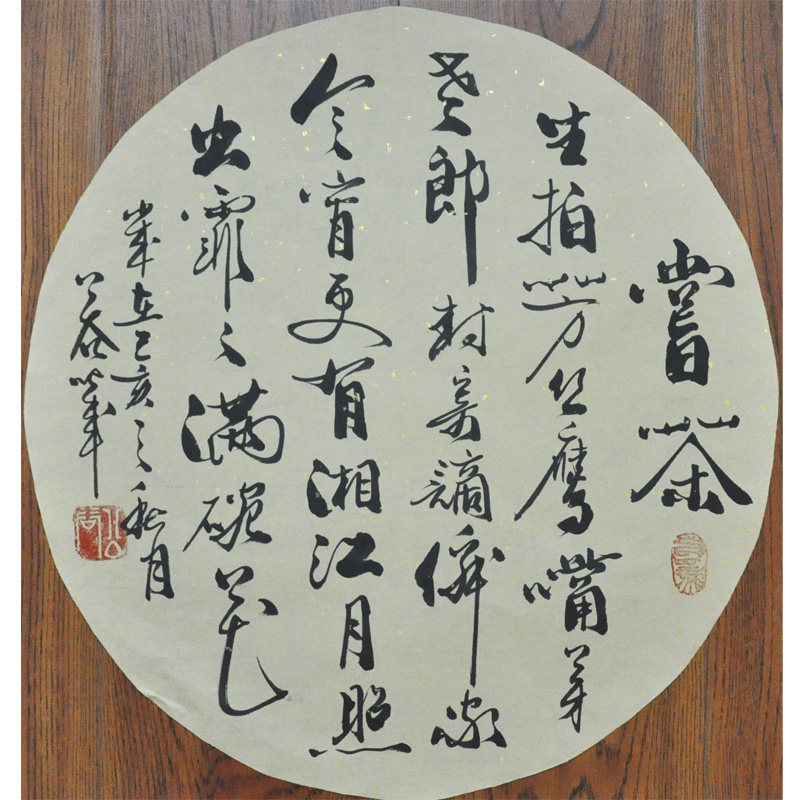 嘗茶
生拍芳丛鷹嘴芽
老郎封寄謫僊家
今宵更有湘江月照
出霏〻滿碗花
歲在己亥之秋月
筆